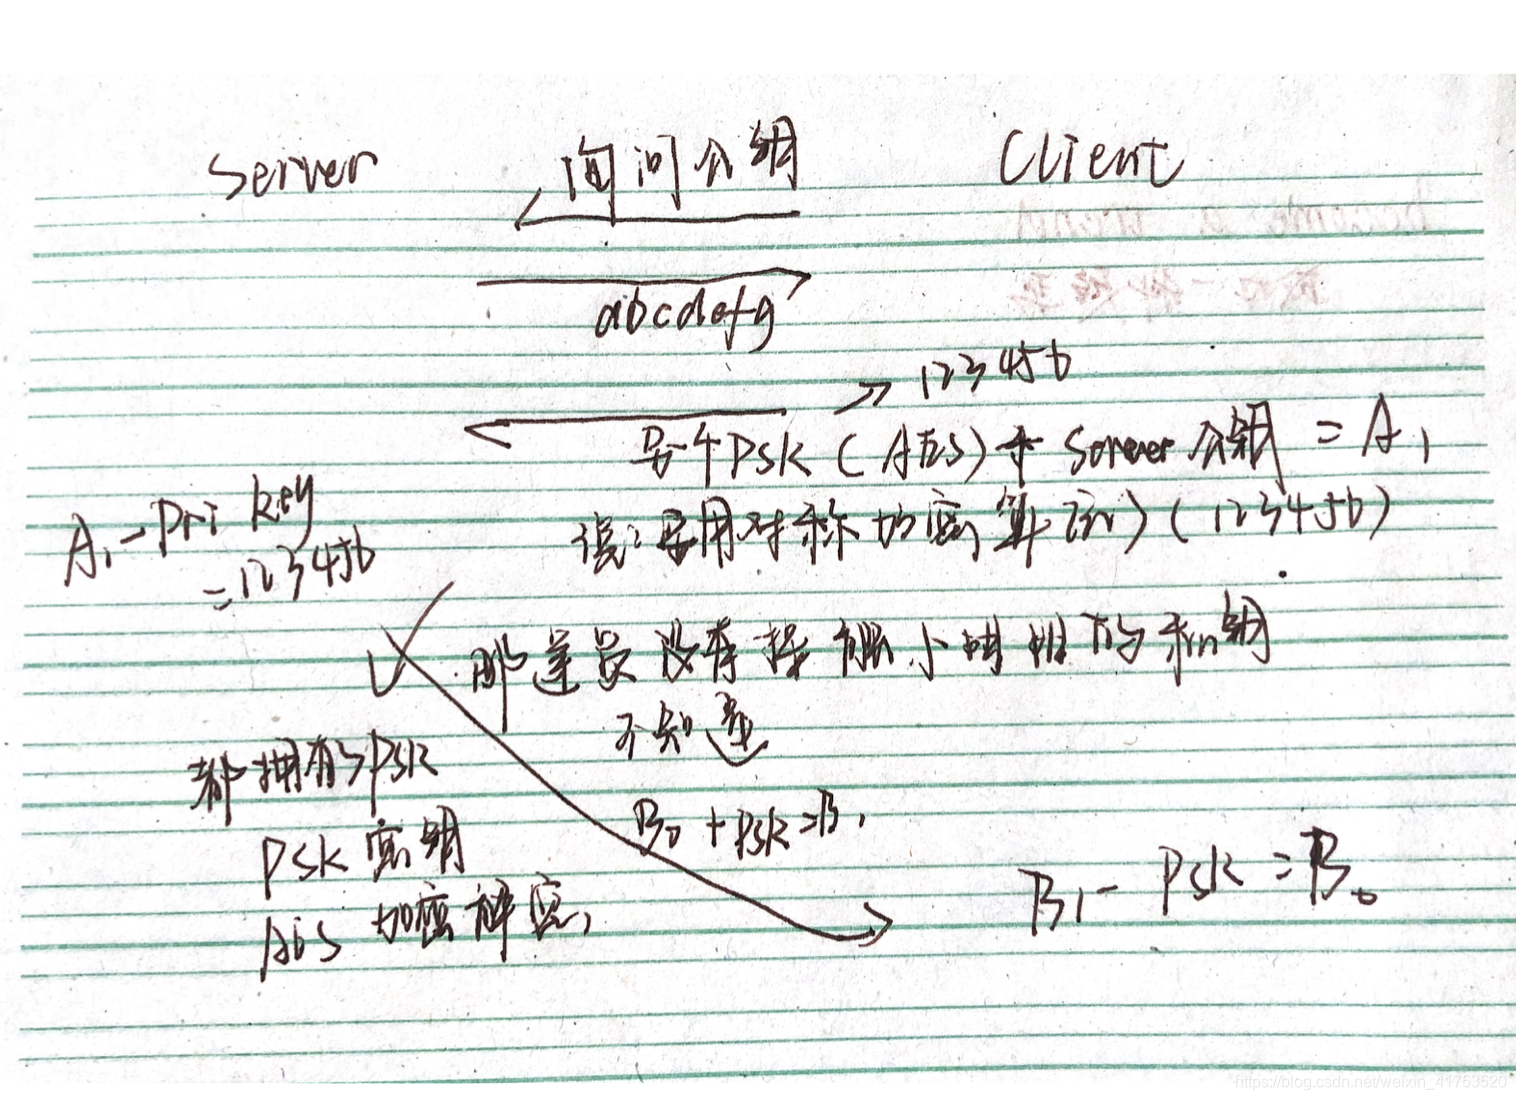 Server 询问公钥 Client
abcdefg
→ 123456
另一个PSK (AES) + Server 公钥 = A1
说:采用对称加密算法) (123456)
A1 - Pri key
= 123456
那 没有 小明 的私钥
不知道
都拥有了PSK
PSK 密钥
AES 加密解密,
B0 + PSK = B1
B1 - PSK = B0
https://blog.csdn.net/weixin_41753520